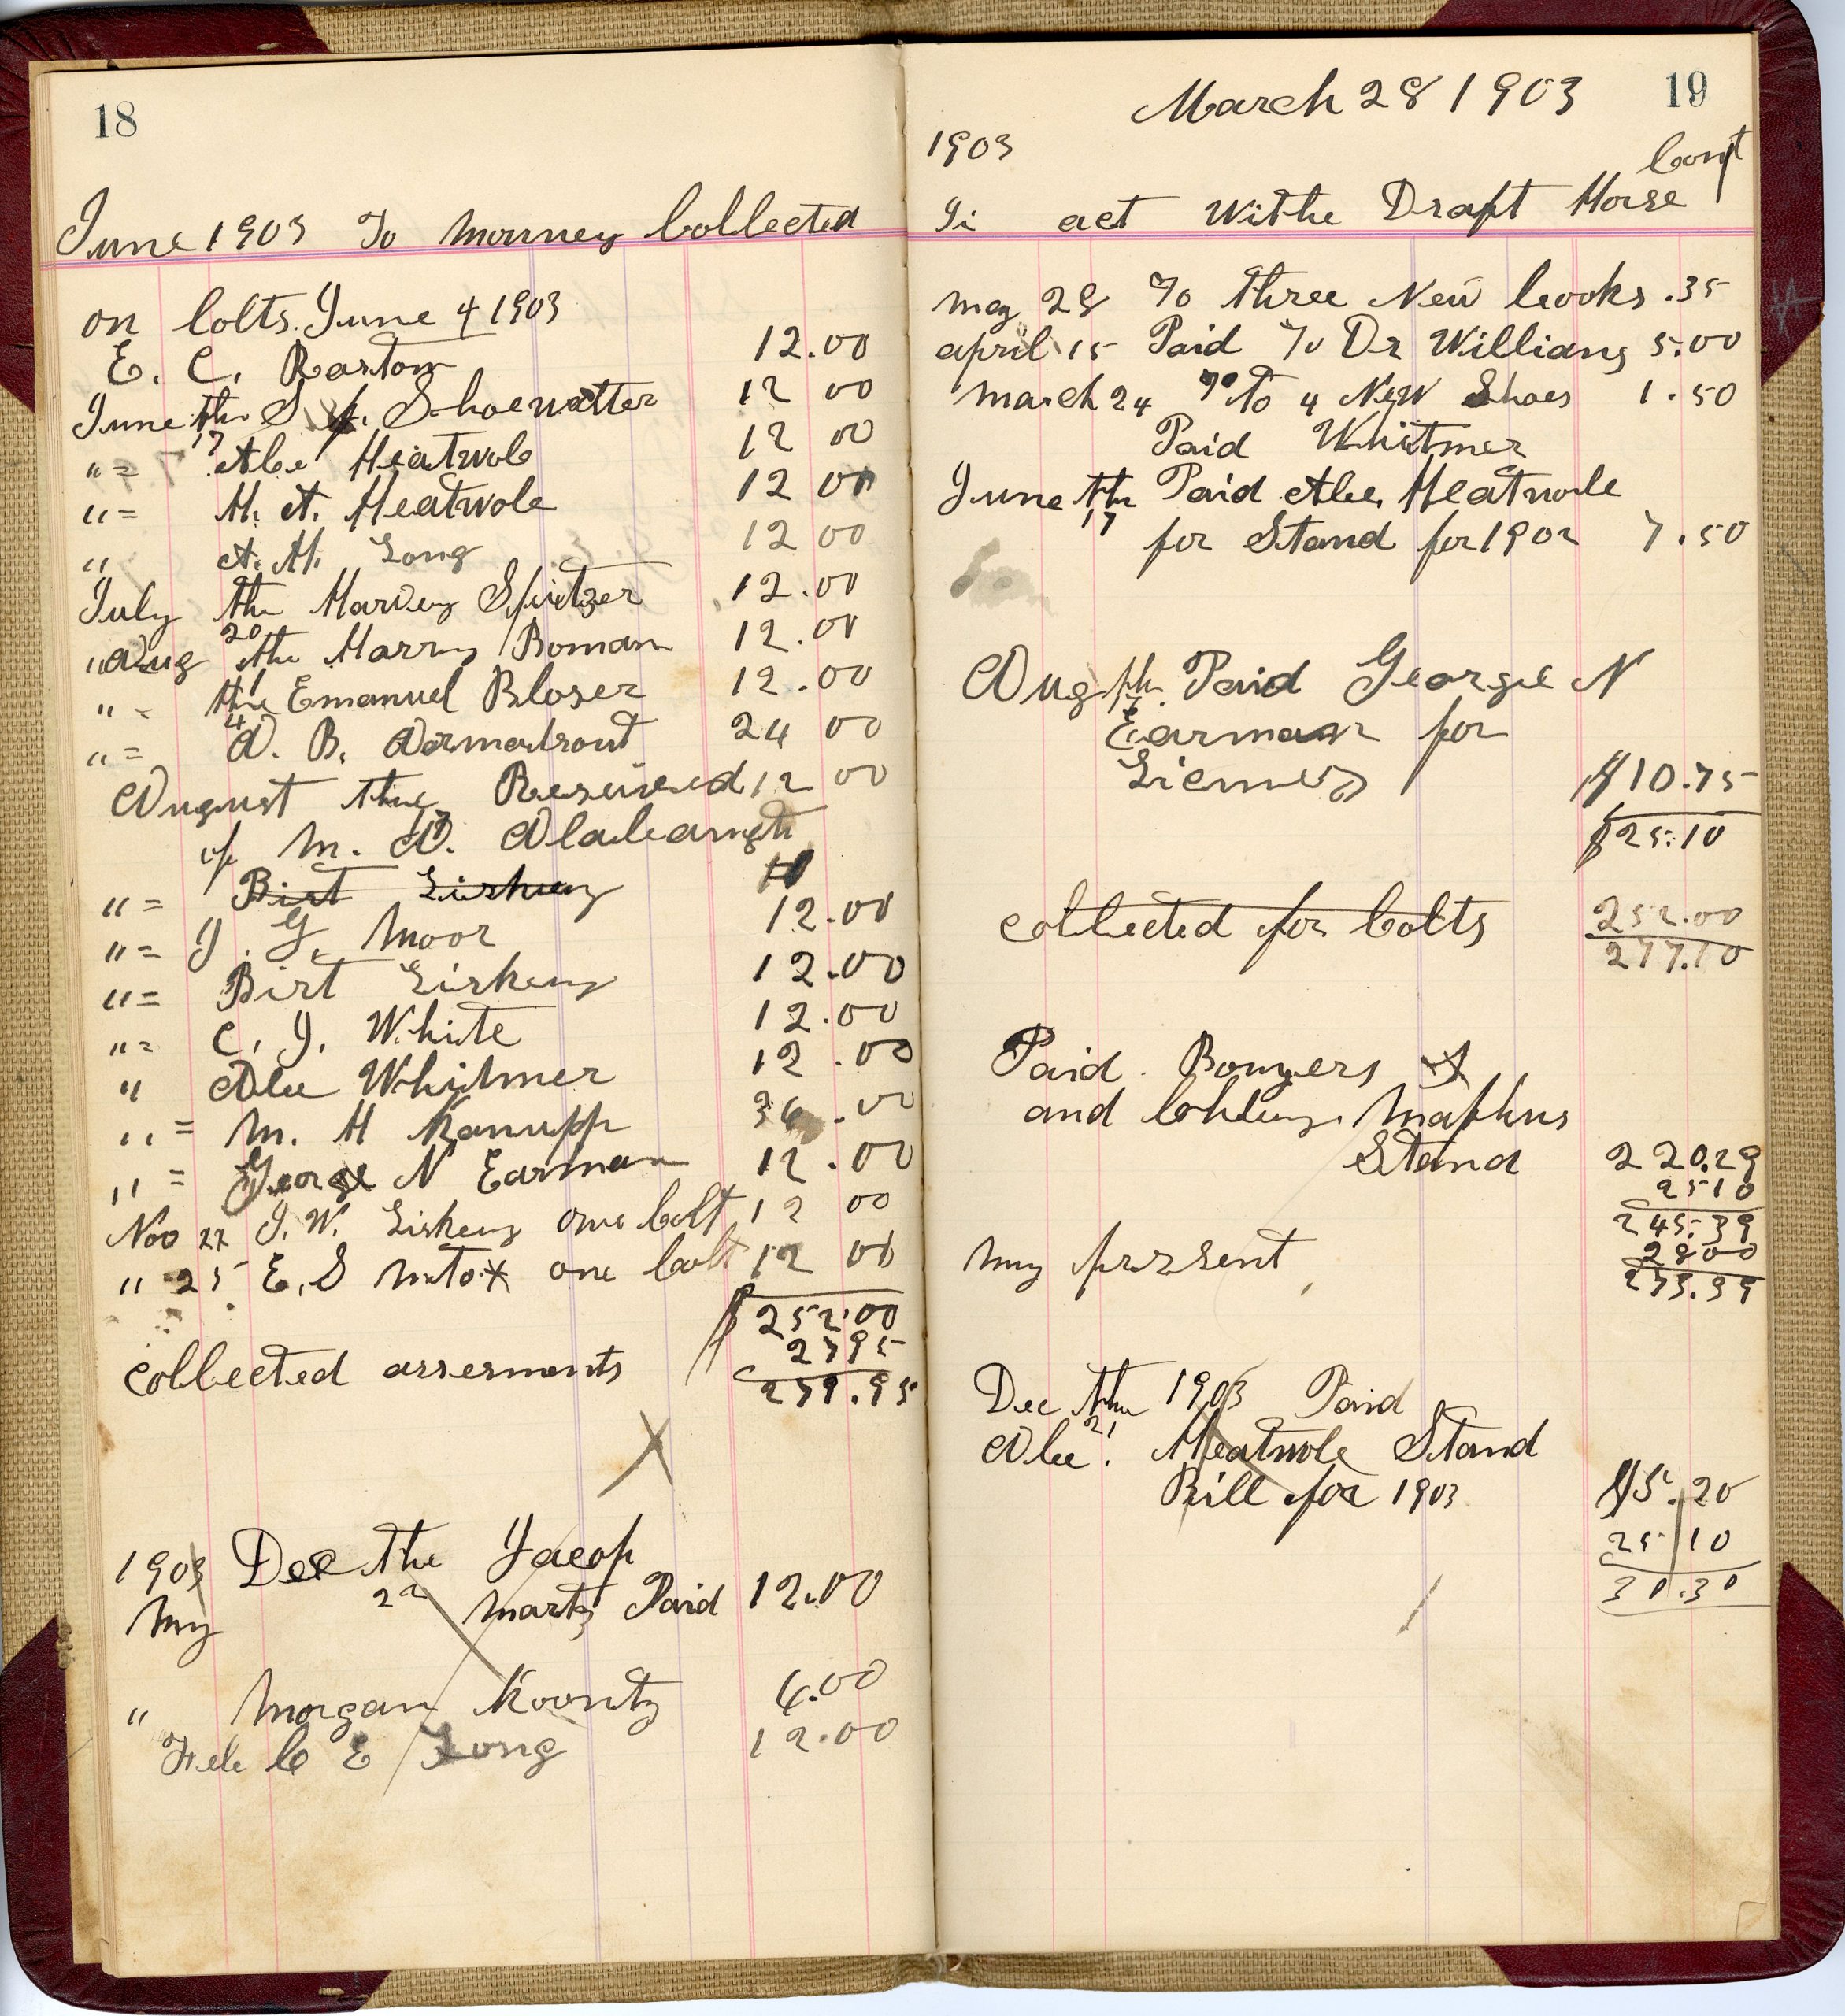 18
June 1903 To Monney Collected
on Colts. June 4 1903
E. C. Raston 12.00
June the 17 S. Shoewatter 12 00
" = Abe Heatwole 12 00
" = H. A. Heatwole 12 00
" A. H. Long 12 00
July the 20 Harvey Spitzer 12.00
" Aug the 1 Harry Boman 12.00
" = the 4 Emanuel Bloser 12.00
" = A. B. Armentrout 24 00
August the 17 Reseived 12 00
of M. A.
" = Birt Liskey
" = J. G. Moor 12.00
" = Birt Liskey 12.00
" = C. J. White 12.00
" Abe Whitmer 12.00
" = M. H Kanupp 36.00
" = George N Earman 12.00
Nov 27 J. W. Liskey one Colt 12 00
" 25 E. S one Colt 12 00
$ 252.00
2795
collected assesments 279.95
1903 Dec the 22 Jacop
My Martz Paid 12.00
" Morgan Koontz 6.00
Feb C E Long 12.00
March 28 1903 19
1903
Cont
In act Withe Draft Horse
May 28 To three New books .35
april 15 Paid To Dr Willians 5.00
march 24 To 4 New Shoes 1.50
Paid Whitmer
June the 17 Paid Abe Heatwole
for Stand for 1902 7.50
Aug the Paid George N
Earman for
$10.75
$25.10
collected for Colts 252.00
277.10
Paid Bowyers
and Maphus
Stand 220.29
2510
245.39
My present 2800
273.39
Dec the 21 1903 Paid
Abe Heatwole Stand
Bill for 1903 $5.20
25 10
30.30